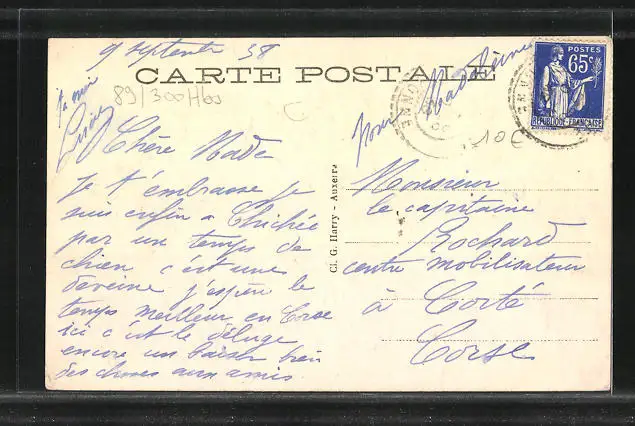 9 septembre 38
CARTE POSTALE
89/300Hbo
€
10€
POSTES
65c
REPUBLIQUE FRANÇAISE
ta mie
Chère Mado
Je t'embrasse je
suis enfin a Chichée
par un temps de
chien c'est une
deveine j'espère le
temps meilleur en Corse
ici c'est le déluge
encore un baiser bien
des choses aux amis.
Cl. G. Harry - Auxerre
pour Madeleine
Monsieur
le capitaine
Rochard
centre mobilisateur
à Corté
Corse